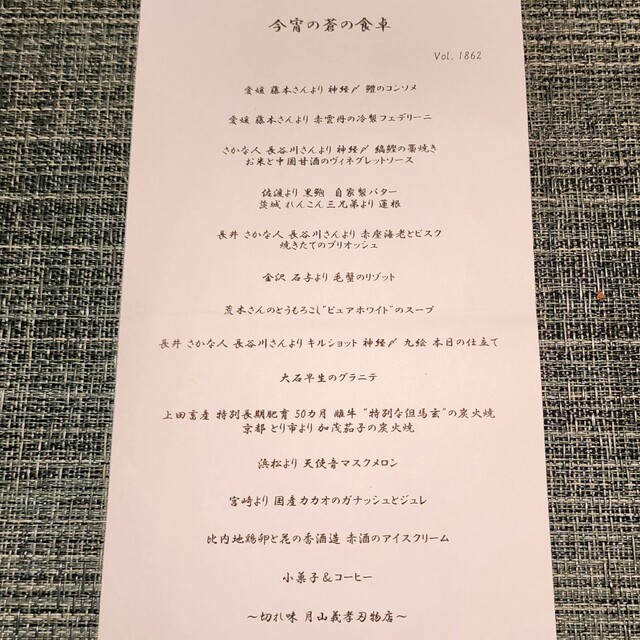 今宵の蒼の食卓
Vol. 1862
愛媛 藤本さんより 神経〆 鱧のコンソメ
愛媛 藤本さんより 赤雲丹の冷製フェデリーニ
さかな人 長谷川さんより 神経〆 縞鰹の藁焼き
お米と中国甘酒のヴィネグレットソース
佐渡より 黒鮑 自家製バター
茨城 れんこん三兄弟より 蓮根
長井 さかな人 長谷川さんより 赤座海老とビスク
焼きたてのブリオッシュ
金沢 石子より 毛蟹のリゾット
荒木さんのとうもろこし"ピュアホワイト"のスープ
長井 さかな人 長谷川さんより キルショット 神経〆 九絵 本日の仕立て
大石早生のグラニテ
上田畜産 特別長期肥育 50カ月 雌牛 "特別な但馬玄"の炭火焼
京都 とり市より 加茂茄子の炭火焼
浜松より 天使音マスクメロン
宮崎より 国産カカオのガナッシュとジュレ
比内地鶏卵と花の香酒造 赤酒のアイスクリーム
小菓子&コーヒー
～切れ味 月山義孝刃物店～